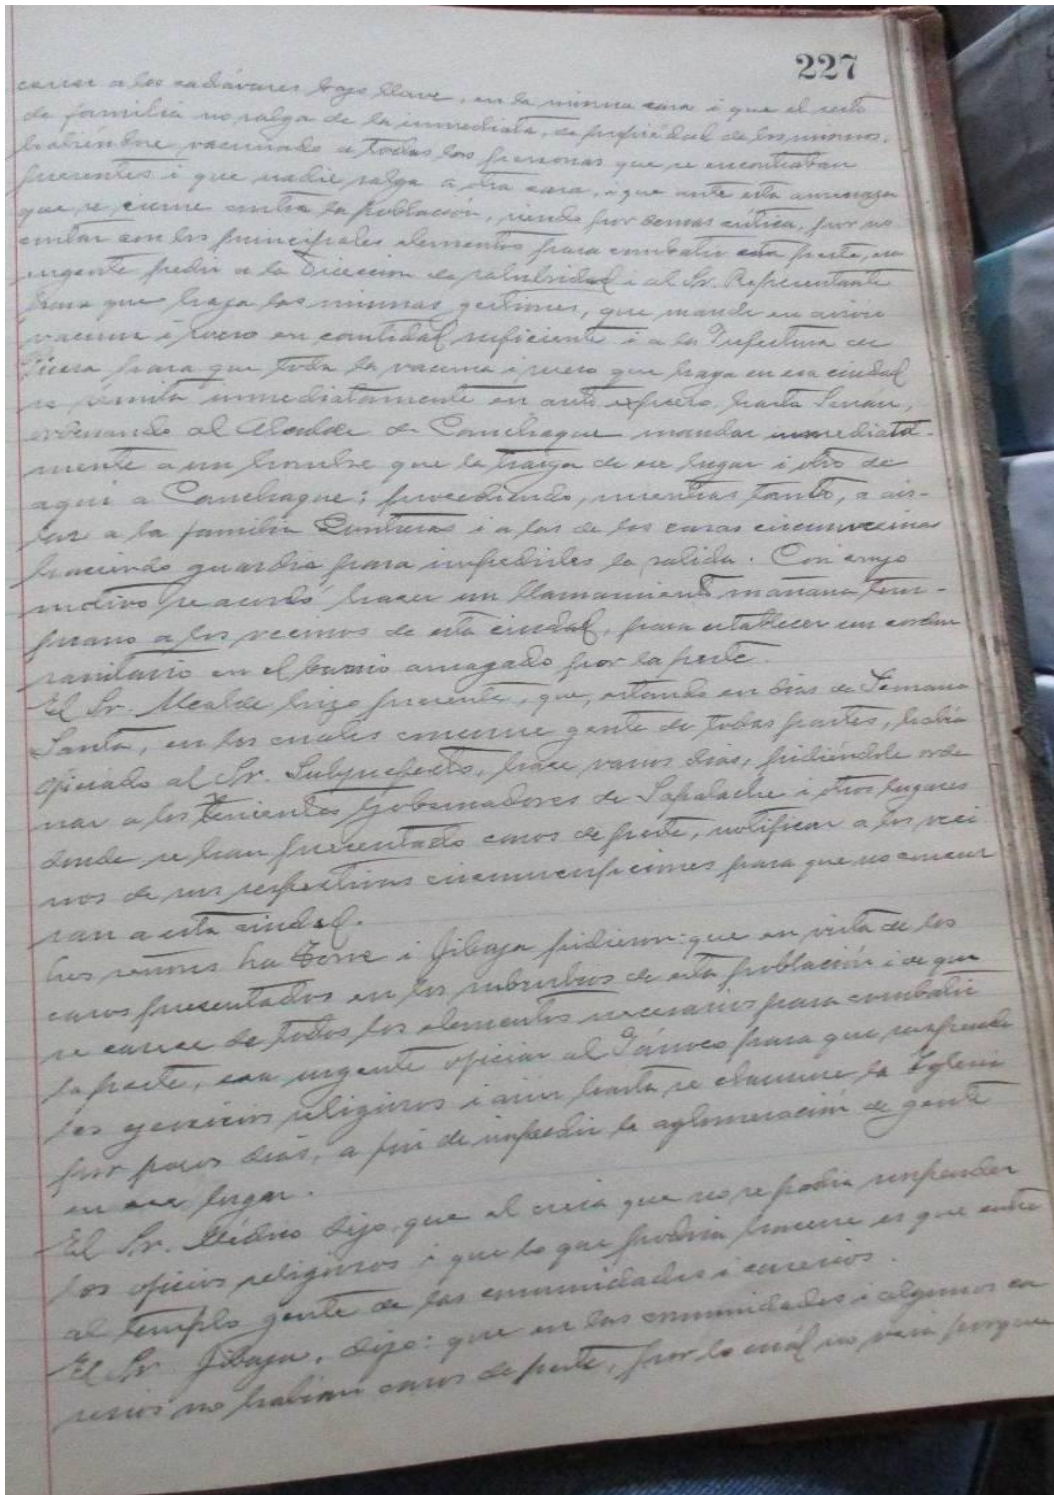 227
cerrar a los cadáveres bajo llave, en la misma casa i que el resto
de familia no salga de la inmediata, de propiedad de los mismos,
habiéndose vacunado a todas las personas que se encontraban
presentes i que nadie salga a otra casa, i que ante esta amenaza
que se cierne contra la población, siendo por demás crítica, por no
contar con los principales elementos para combatir esta peste, era
urgente pedir a la Dirección de salubridad i al Sr. Representante
para que haga las mismas gestiones, que mande en avión
vacuna i suero en cantidad suficiente i a la Prefectura de
Piura para que toda la vacuna i suero que haya en esa ciudad
se remita inmediatamente en auto expreso hasta
ordenando al Alcalde de Canchaque mandar inmediata-
mente a un hombre que la traiga de ese lugar i otro de
aquí a Canchaque; procediendo, mientras tanto, a ais-
lar a la familia Contreras i a las de las casas circunvecinas
haciendo guardia para impedirles la salida. Con cuyo
motivo se acordó hacer un llamamiento mañana tem-
prano a los vecinos de esta ciudad, para establecer un cordón
sanitario en el barrio amagado por la peste.
El Sr. Alcalde hizo presente, que, estando en días de Semana
Santa, en los cuales concurre gente de todas partes, había
oficiado al Sr. Subprefecto, hace varios días, pidiéndole orde
nar a los Tenientes Gobernadores de Sapalache i otros lugares
donde se han presentado casos de peste, notificar a los veci
nos de sus respectivas circunscripciones para que no concur
ran a esta ciudad.
Los señores La Torre i Jibaja pidieron: que en vista de los
casos presentados en los suburbios de esta población i de que
se carece de todos los elementos necesarios para combatir
la peste, era urgente oficiar al Párroco para que suspenda
los ejercicios religiosos i aún hasta se clausure la Iglesia
por pocos días, a fin de impedir la aglomeración de gente
en ese lugar.
El Sr. Médico dijo, que el creía que no se podía suspender
los oficios religiosos i que lo que podría hacerse es que entre
al templo gente de las comunidades i caseríos.
El Sr. Jibaja, dijo: que en las comunidades i algunos ca
seríos no habían casos de peste, por lo cuál no veía porque